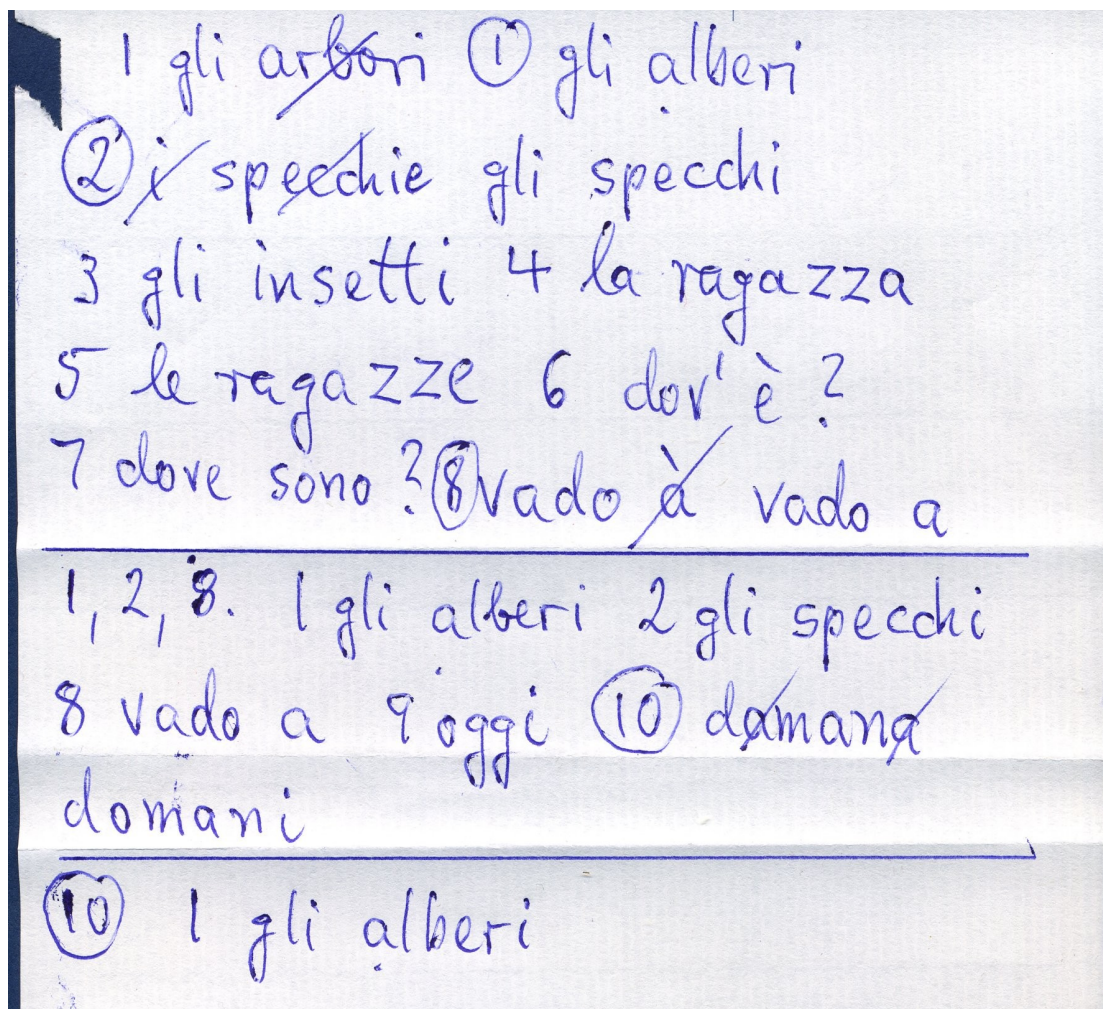 1 gli arbori 1 gli alberi
2 i specchie gli specchi
3 gli insetti 4 la ragazza
5 le ragazze 6 dov'è?
7 dove sono? 8 vado à vado a
1, 2, 8. 1 gli alberi 2 gli specchi
8 vado a 9 oggi 10 damana
domani
10 1 gli alberi